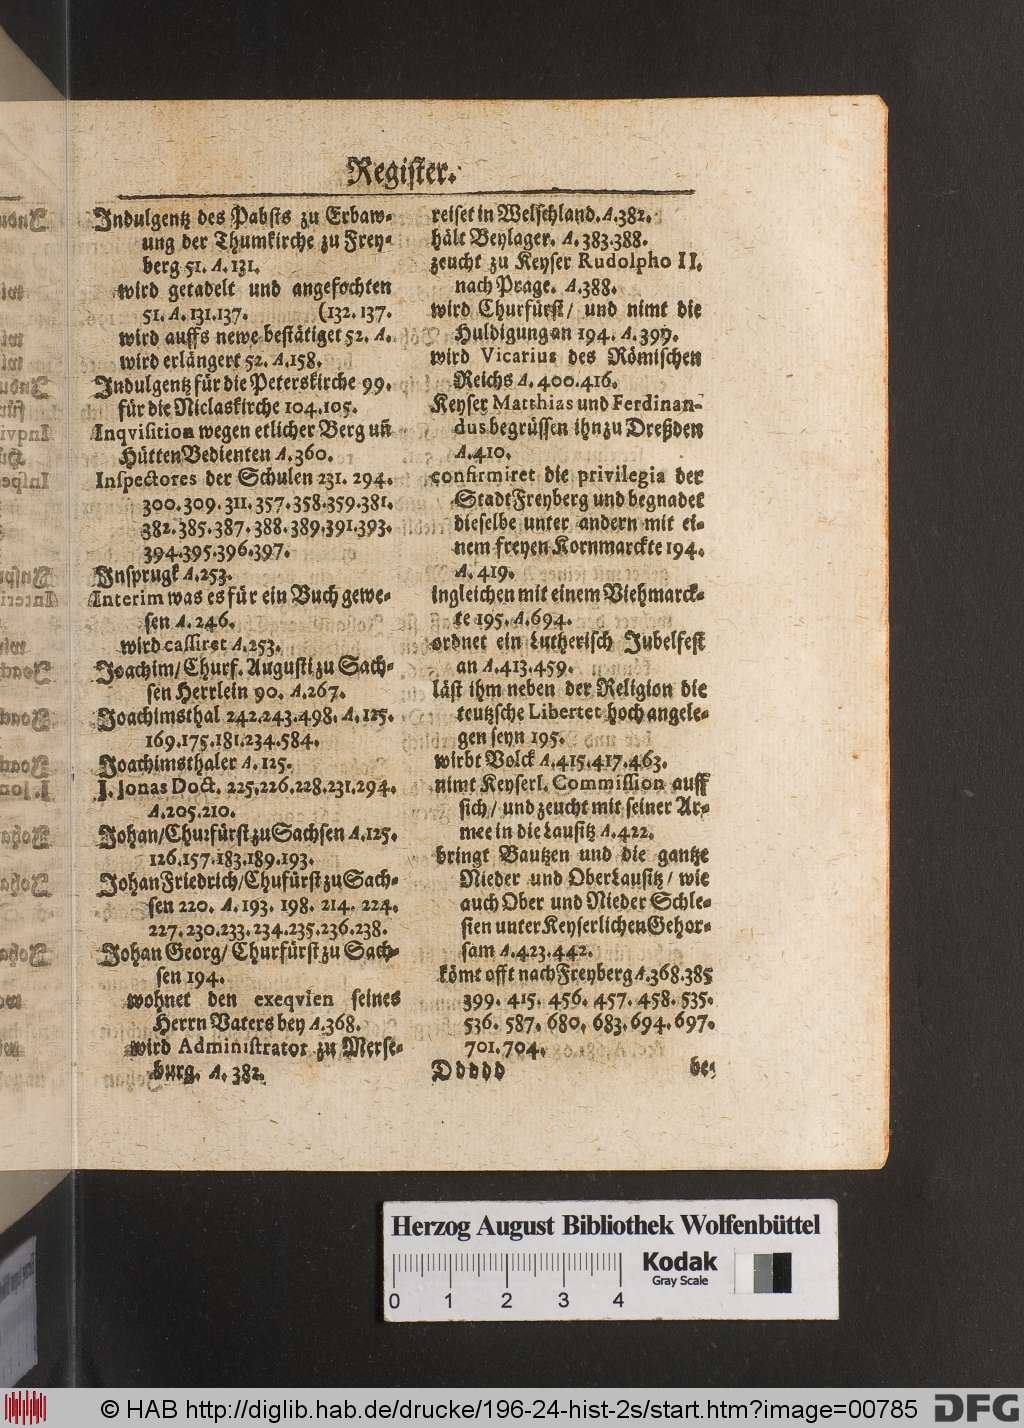 Register.
Indulgentz des Pabsts zu Erbaw-
ung der Thumkirche zu Frey-
berg 51. A. 131.
wird getadelt und angefochten
51. A. 131.137. (132. 137.
wird auffs newe bestätiget 52. A.
wird erlängert 52. A.158.
Indulgentz für die Peterskirche 99.
für die Niclaskirche 104.105.
Inqvisition wegen etlicher Berg uñ
Hütten Bedienten A.360.
Inspectores der Schulen 231. 294.
300.309.311.357.358.359.381.
382.385.387.388.389.391.393.
394.395.396.397.
Insprugk A.253.
Interim was es für ein Buch gewe-
sen A.246.
wird cassiret A.253.
Joachim/Churf. Augusti zu Sach-
sen Herrlein 90. A.267.
Joachimsthal 242.243.498. A.125.
169.175.181.234.584.
Joachimsthaler A.125.
J. Jonas Doct. 225.226.228.231.294.
A.205.210.
Johan/Churfürst zu Sachsen A.125.
126.157.183.189.193.
Johan Friedrich/Chufürst zu Sach-
sen 220. A.193. 198. 214. 224.
227.230.233.234.235.236.238.
Johan Georg/ Churfürst zu Sach-
sen 194.
wohnet den exeqvien seines
Herrn Vaters bey A.368.
wird Administrator zu Merse-
burg. A. 382.
reiset in Welschland. A.382.
hält Beylager. A.383.388.
zeucht zu Keyser Rudolpho II.
nach Prage. A.388.
wird Churfürst/ und nimt die
Huldigung an 194. A.399.
wird Vicarius des Römischen
Reichs A. 400.416.
Keyser Matthias und Ferdinan-
dus begrüssen ihn zu Dreßden
A.410.
confirmiret die privilegia der
Stadt Freyberg und begnadet
dieselbe unter andern mit ei-
nem freyen Kornmarckte 194.
A. 419.
ingleichen mit einem Viehmarck-
te 195. A.694.
ordnet ein Lutherisch Jubelfest
an A.413.459.
läst ihm neben der Religion die
teutzsche Libertet hoch angele-
gen seyn 195.
wirbt Volck A.415.417.463.
nimt Keyserl. Commission auff
sich/ und zeucht mit seiner Ar-
mee in die Lausitz A.422.
bringt Bautzen und die gantze
Nieder und Ober Lausitz / wie
auch Ober und Nieder Schle-
sien unter Keyserlichen Gehor-
sam A.423.442.
kömt offt nach Freyberg A.368.385
399. 415. 456. 457. 458. 535.
536. 587. 680. 683. 694. 697.
701. 704.
Ddddd be-
Herzog August Bibliothek Wolfenbüttel
Kodak
Gray Scale
0 1 2 3 4
© HAB http://diglib.hab.de/drucke/196-24-hist-2s/start.htm?image=00785
DFG